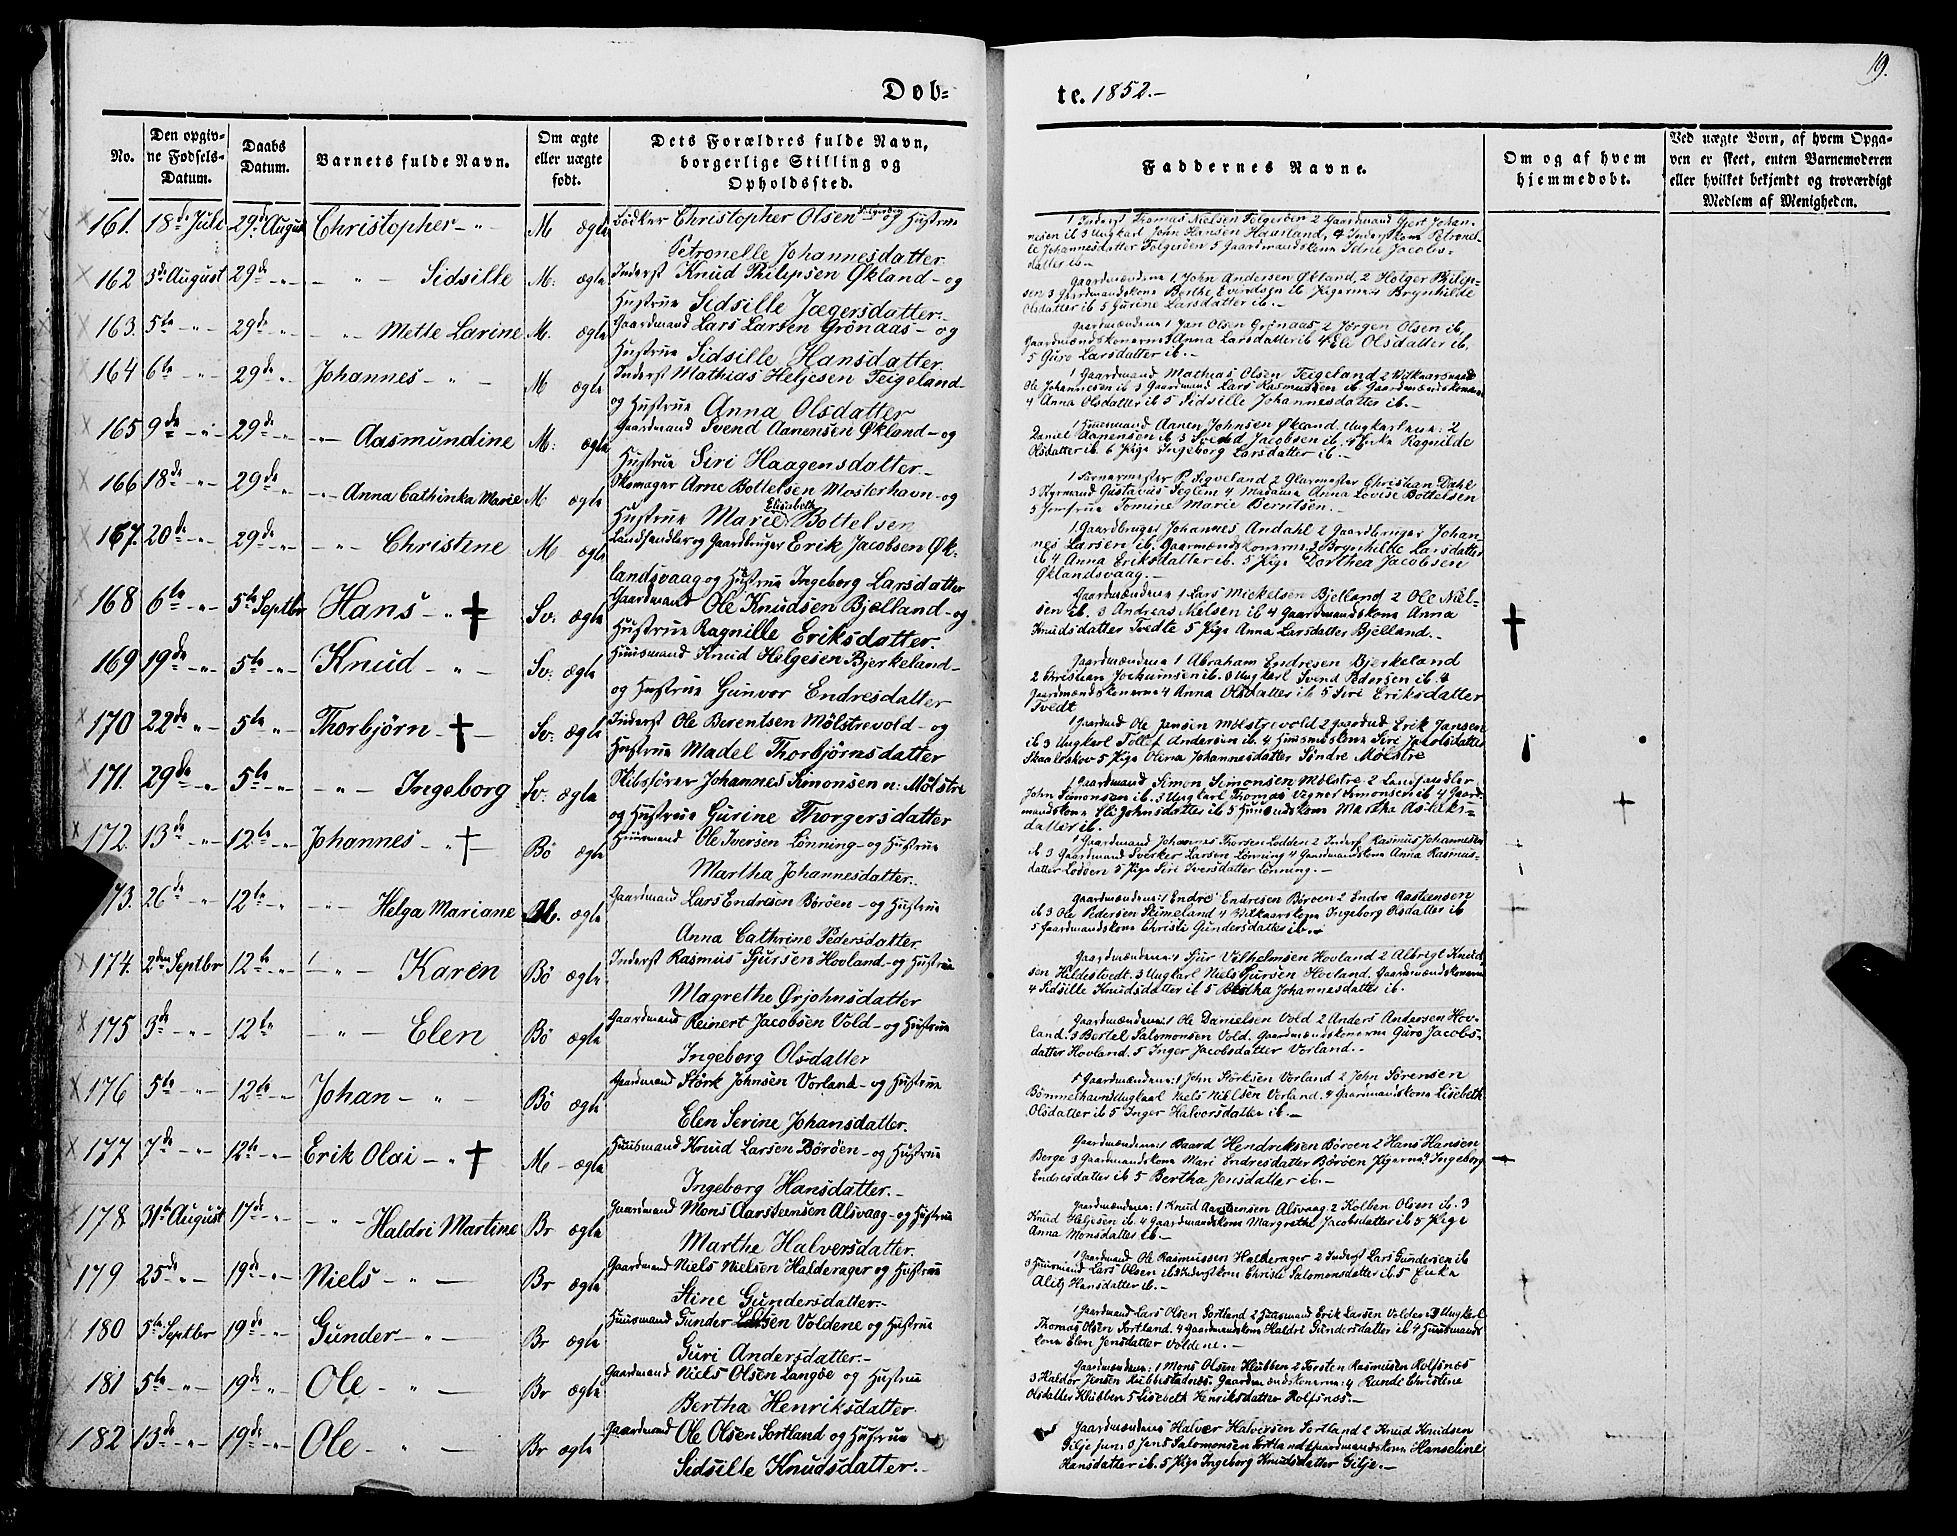 19.
Døb-
te. 1852.-
No.
Den opgiv-
ne Fødsels-
Datum.
Daabs
Datum.
Barnets fulde Navn.
Om ægte
eller uægte
født.
Dets Forældres fulde Navn,
borgerlige Stilling og
Opholdssted.
Faddernes Navne.
Om og af hvem
hjemmedøbt.
Ved uægte Børn, af hvem Opga-
ven er skeet, enten Barnemoderen
eller hvilket bekjendt og troværdigt
Medlem af Menigheden.
161. 18de Juli 29de August Christopher - " - M ægte Bødker Christopher Olsen og Hustrue
Petronelle Johannesdatter
1 Inderst Thomas Nielsen Folgerøen 2 Gaardmand Gjert Johan-
nesen ib 3 Ungkarl John Hansen Haarland, 4 Inderstkone Petronel-
le Johannesdatter Folgerøen 5 Gaardmandskone Jacobs-
datter ib -
162 3de August 29de - " - - " - Sidsille M: ægte Inderst Knud Philipsen Økland - og
Hustrue Sidsille Jægersdatter.-
Gaardmændene 1 John Andersen Økland, 2 Holger Philip-
sen 3 Gaardmandskone Berthe Evindsen ib Pigerne 4 Brynhilde
Olsdatter ib 5 Gurine Larsdatter ib. -
163. 5te - " - 29de - " - Mette Larine M. ægte Gaardmand Lars Larsen Grønaas - og
Hustrue Sidsille Hansdatter
Gaardmændene 1 Jan Olsen Grønaas 2 Jørgen Olsen ib,
Gaardmandskonerne 3 Anna Larsdatter ib 4 Eli Olsdatter ib,
5 Guro Larsdatter ib. -
164 6te - " - 29de - " - Johannes - " - M ægte Inderst Mathias Heljesen Teigeland -
og Hustrue Anna Olsdatter
1 Gaardmand Mathias Olsen Teigeland 2 Vilkaarsmand
Ole Johannesen ib 3 Gaardmand Lars Rasmussen ib Gaardmændskonerne
4 Anna Olsdatter ib 5 Sidsille Johannesdatter ib. -
165 9de - " - 29de - " - - " - Aasmundine M: ægte Gaardmand Svend Aanensen Økland - og
Hustrue Siri Haagensdatter -
1 Huusmand Aanen Johnsen Økland Ungkarlene: 2
Daniel Aanensen ib 3 Svend Jacobsen ib. 4 Enke Ragnilde
Olsdatter ib. 6 Pige Ingeborg Larsdatter ib. -
166 18de - " - 29de - " - - " - Anna Cathinka Marie M. ægte Skomager Arne Bottelsen Mosterhavn - og
Hustrue Marie Elisabeth Bottelsen
1 Farvermester P. Sigveland 2 Glarmester Christian Dahl
3 Styrmand Gustavus Seglem 4 Madame Anna Lovise Bottelsen
5 Jomfrue Tomine Marie Berntsen. -
167. 20de - " - 29de - " - - " - Christine M ægte Landhandler og Gaardbruger Erik Jacobsen Øk-
landsvaag og Hustrue Ingeborg Larsdatter
1 Gaardbruger Johannes Andahl 2 Gaardbruger Johan-
nes Larsen ib. Gaardmændskonerne 3 Brynhilde Larsdatter
ib 4 Anna Eriksdatter ib. 5 Pige Dorthea Jacobsen
Øklandsvaag. -
168 6te - " - 5te Septbr Hans - " † Sv: ægte Gaardmand Ole Knudsen Bjelland - og
Hustrue Ragnille Eriksdatter.
Gaardmændene 1 Lars Mickelsen Bjelland 2 Ole Niel-
sen ib. 3 Andreas Nielsen ib 4 Gaardmandskone Anna
Knudsdatter Tvedte 5 Pige Anna Larsdatter Bjelland. -
169 19de - " - 5te - " - Knud - " - Sv: ægte Huusmand Knud Helgesen Bjerkeland -
og Hustrue Gunvor Endresdatter
Gaardmændene 1 Abraham Endresen Bjerkeland
2 Christian Jochumsen ib. 3 Ungkarl Svend Pedersen ib 4
Gaardmændskonerne 4 Anna Olsdatter ib 5 Siri Eriksdatter
Tvedt
170 22de " - 5te " - Thorbjørn - † - Sv: ægte Inderst Ole Berentsen Mølstrevold - og
Hustrue Madel Thorbjørnsdatter
1 Gaardmd Ole Jensen Mølstrevold 2 Gaardmd Erik Jansen
ib 3 Ungkarl Tollef Andersen ib. 4 Huusmdskone Siri Jacobsdatter
Skaalevkov 5 Pige Olina Johannesdatter Søndre Mølstre
171. 29de - " - 5te - " - - " - Ingeborg Sv: ægte Skibsfører Johannes Simonsen n: Mølstre
og Hustrue Gurine Thorgersdatter
1 Gaardmand Simon Simonsen Mølstre 2 Landhandler
John Simonsen ib. 3 Ungkarl Thomas Vigner Simonsen ib 4 Gaard-
mandskone Eli Johnsdatter ib 5 Huusmdskone Martha Aslaks-
datter ib.
172. 13de - " - 12te - " - Johannes - " † - Bø ægte Huusmand Ole Iversen Lønning - og Hustrue
Martha Johannesdatter.
1 Gaardmand Johannes Thorsen Lodden 2 Inderst Rasmus Johannesen
ib 3 Gaardmand Sverker Larsen Lønning 4 Gaardmandskone Anna Rasmus-
datter Lodden 5 Pige Siri Iversdatter Lønning. -
73. 26de - " - 12te - " - - " - Helga Mariane M. ægte Gaardmand Lars Endresen Børøen - og Hustrue
Anna Cathrine Pedersdatter
Gaardmændene: 1 Endre Endresen Børøen 2 Endre Aastensen
ib 3 Ole Pedersen Steimeland 4 Vilkaarskone Ingeborg Olsdatter ib
5 Gaardmandskone Christi Gundersdatter ib. -
174. 2den Septbr 12te - " - - " - Karen Bø ægte Inderst Rasmus Sjursen Hovland - og Hustrue
Magrethe Ørjohnsdatter
Gaardmændene: 1 Sjur Vilhelmsen Hovland 2 Albrigt Knud-
sen Hildestvedt. 3 Ungkarl Niels Sjursen Hovland. Gaardmændskonerne
4 Sidsille Knudsdatter ib 5 Bertha Johannesdatter ib.
175 3de - " - 12te - " - Elen Bø ægte Gaardmand Reinert Jacobsen Vold - og Hustrue
Ingeborg Olsdatter
Gaardmændene: 1 Ole Danielsen Vold 2 Anders Andersen Hov-
land. 3 Bertel Salomonsen Vold. Gaardmændskonerne Guro Jacobs-
datter Hovland. 5 Inger Jacobsdatter Vorland. -
176 5te - " - 12te - " - Johan - " - Bø ægte Gaardmand Størk Johnsen Vorland - og Hustrue
Elen Serine Johansdatter.
5 Gaardmændene: 1 John Størksen Vorland 2 John Sørensen
Bømmelhavn Ungkarl Niels Nielsen Vorland. 4 Gaardmandskone Lisebeth
Olsdatter ib 5 Inger Halvorsdatter ib. -
177 7de - " - 12te - " - Erik Olai - " † M - ægte Huusmand Knud Larsen Børøen - og Hustrue
Ingeborg Hansdatter. -
Gaardmændene: 1 Baard Hendriksen Børøen 2 Hans Hansen
Berge 3 Gaardmandskone Mari Endresdatter Børøen Pigerne 4 Ingeborg
Endresdatter ib 5 Bertha Jensdatter ib. -
178 31te August 17de - " - - " - Haldri Martine Br ægte Gaardmand Mons Aarsteensen Alsvaag - og Hustrue
Marthe Halversdatter
Gaardmændene: 1 Knud Aarstensen Alsvaag 2 Kolben Olsen ib. 3
Knud Heljesen ib. 4 Gaardmandskone Margrethe Jacobsdatter ib 5 Pige
Anna Monsdatter ib. -
179 25de - " - 19de - " - Niels - " - Br ægte Gaardmand Niels Nielsen Halderager og Hustrue
Stine Gundersdatter. -
1 Gaardmand Ole Rasmussen Halderager 2 Inderst Lars Gundersen ib
3 Huusmand Lars Olsen ib 4 Inderstkone Christi Salomonsdatter ib. 5 Enke
Alitz Hansdatter ib. -
180 5te Septbr 19de - " - Gunder - " - Br ægte Huusmand Gunder Larsen Voldene og Hustrue
Guri Andersdatter. -
1 Gaardmand Lars Olsen Sortland 2 Huusmand Erik Larsen Voldene 3 Ungkarl
Thomas Olsen Sortland. 4 Gaardmandskone Haldri Gundersdatter ib 4 Huusmands
kone Elen Jensdatter Voldene. -
181 5te - " - 19de " - Ole - " - Br ægte Gaardmand Niels Olsen Langøe og Hustrue
Bertha Henriksdatter
Gaardmændene: 1 Mons Olsen Klubben 2 Torsten Rasmusen Rolfsnæs
3 Haldor Jensen Hubbestadnæs. Gaardmændskonerne: 4 Rundi Christine
Olsdatter Klubben 5 Lisebeth Henriksdatter Rolfsnæs. -
182 13de - " - 19de - " - Ole - " - Br ægte Gaardmand Ole Olsen Sortland og Hustrue
Sidsille Knudsdatter. -
Gaardmændene Halver Halversen Sortland 2 Knud Knudsen
Gilje jun: 3 Jens Salomonsen Sortland 4 Gaardmandskone Hanseline
Hansdatter ib. 5 Pige Ingeborg Knudsdatter Gilje. -